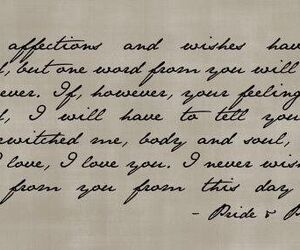 affections and wishes hav
but one word from you will
ever. If, however, your feeling
I will have to tell you
ewitched me, body and soul,
I love, I love you. I never wis
from you from this day
- Pride & P